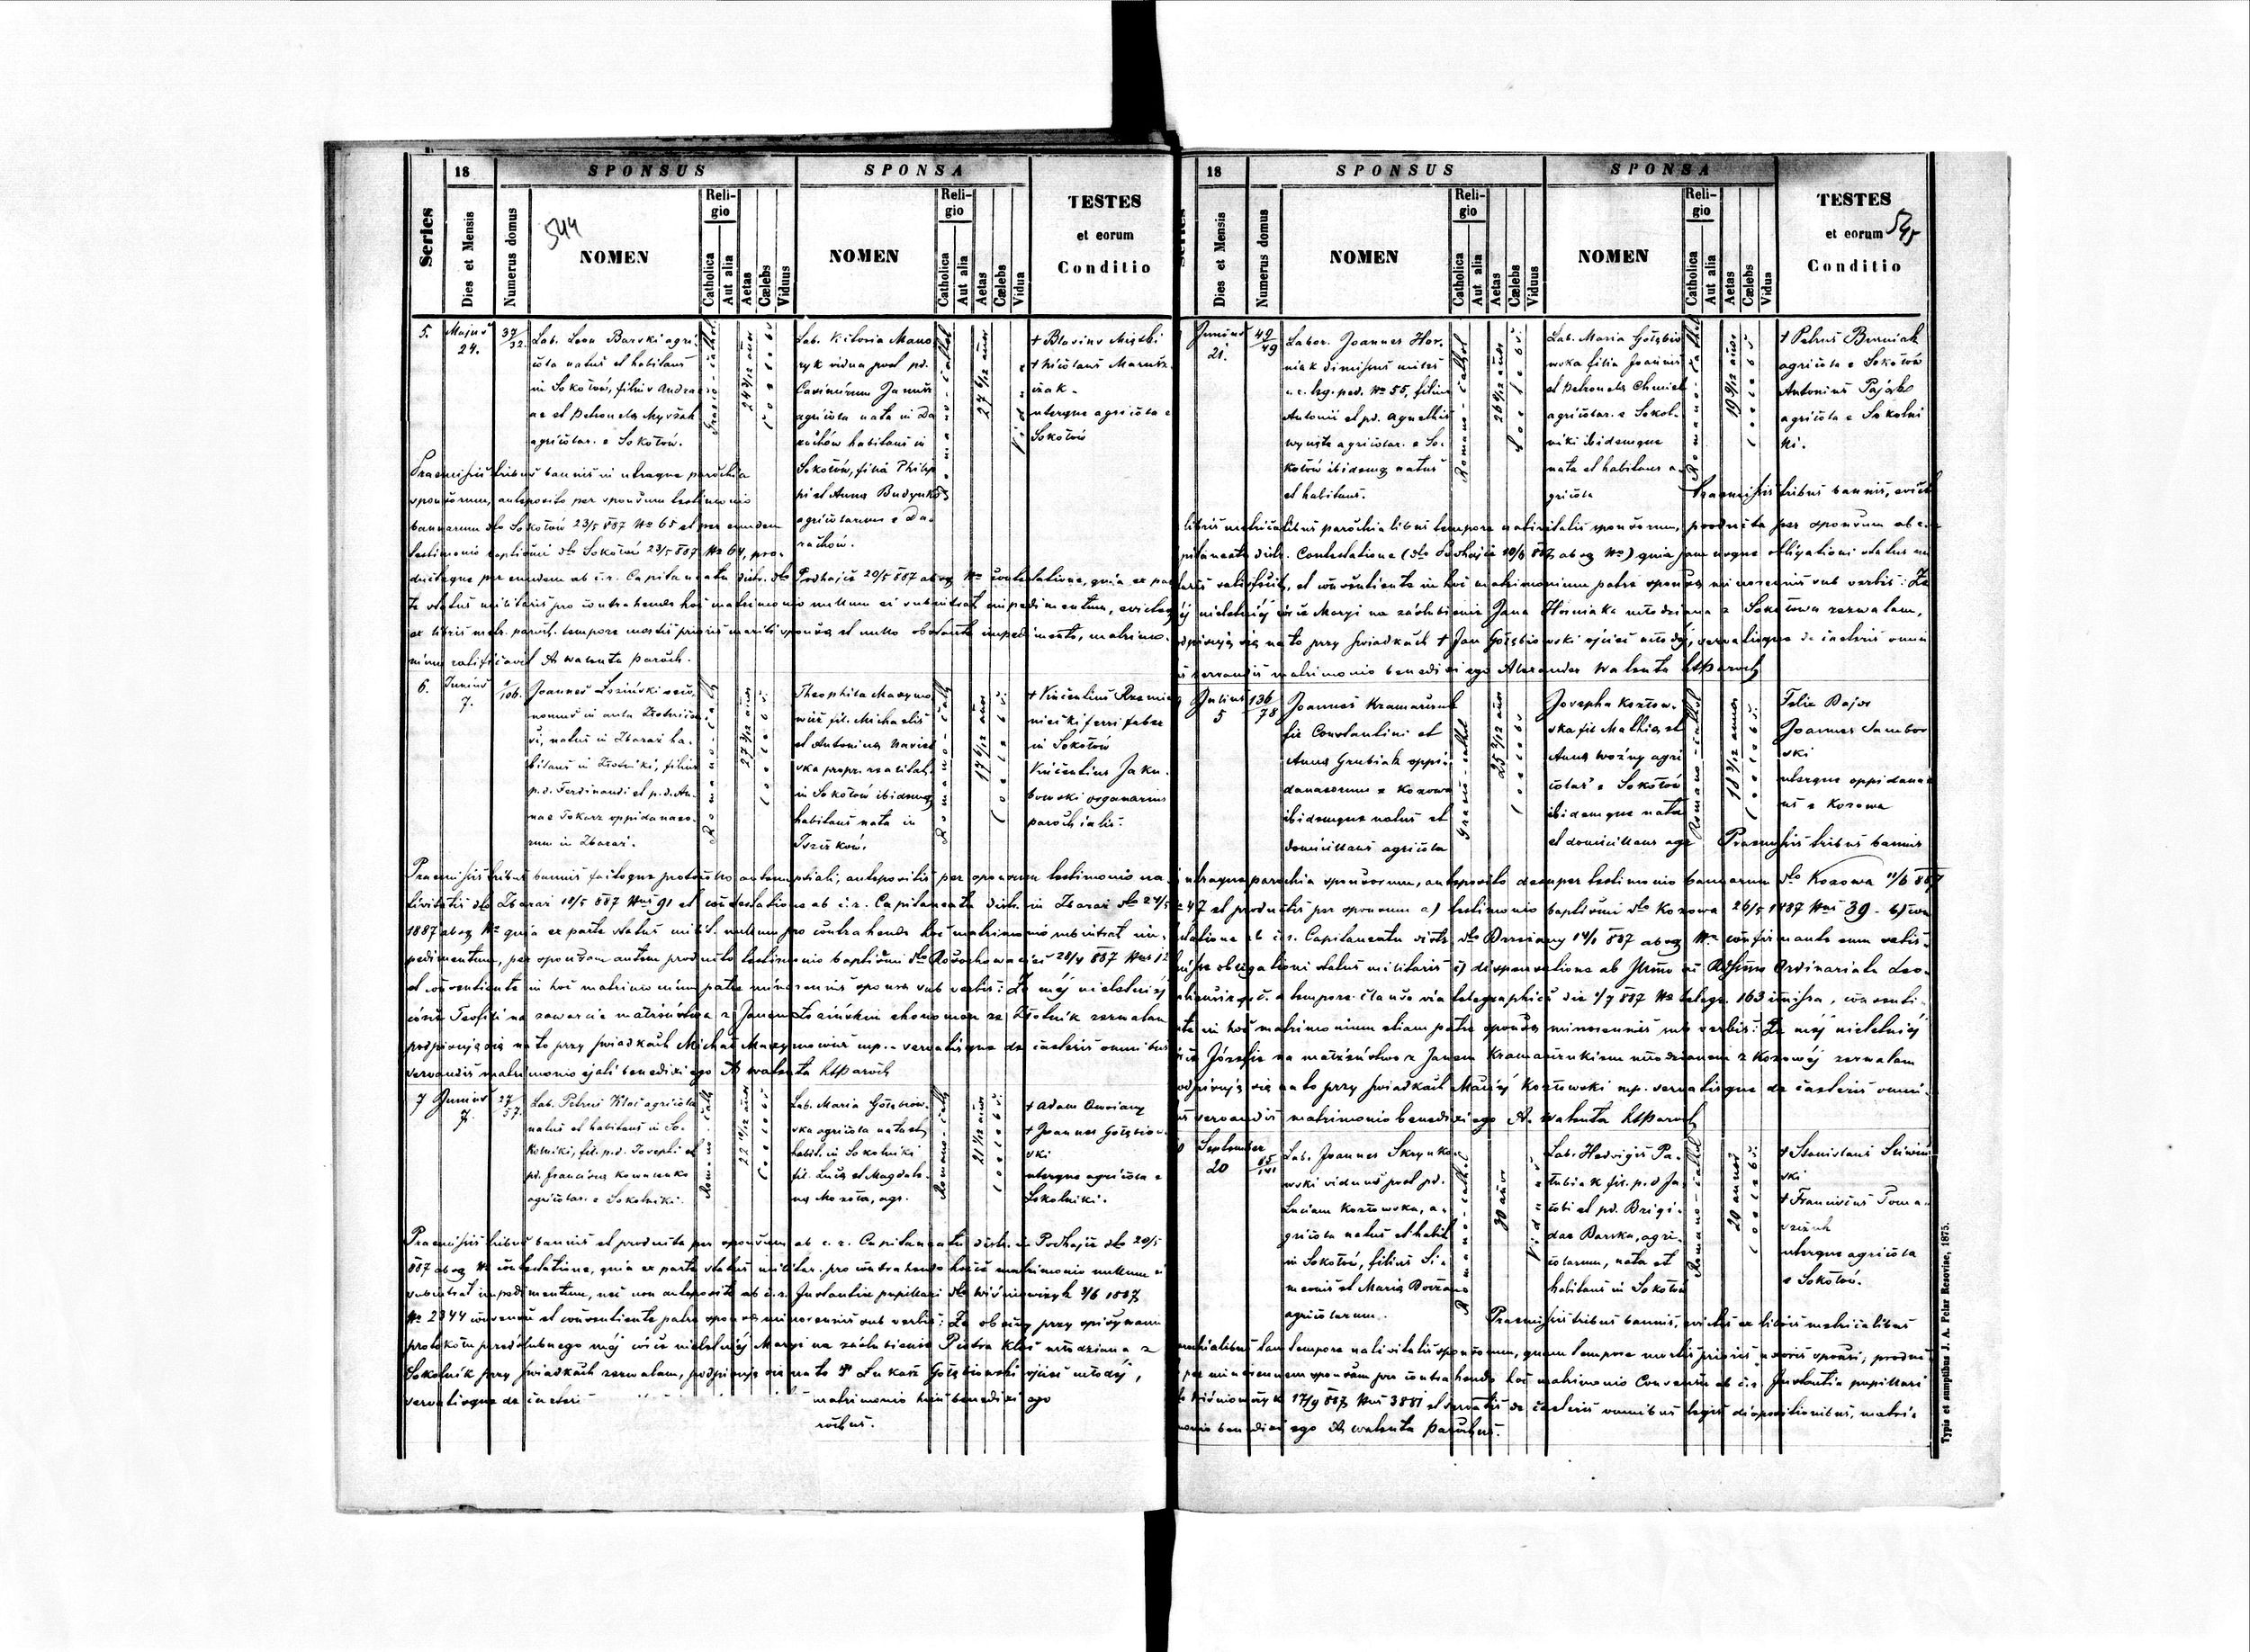 18
SPONSUS
SPONSA
Series
Dies et Mensis
Numerus domus
544
NOMEN
Reli-
gio
Catholica
Aut alia
Aetas
Cælebs
Viduus
NOMEN
Reli-
gio
Catholica
Aut alia
Aetas
Cælebs
Vidua
TESTES
et eorum
Conditio
5.
Majus
24.
37/32
Lab. Leon Barski agri
cola natus et habitans
in Sokołów, filius Andre
ae et Petronela
agricolar. e Sokołów.
24 3/12 annor
coelebs
Lab. Victoria Mano
ryk vidua post pd.
Casimirum Janusz
agricola nata in Da
rachów habitans in
Sokołów, filia Philip
pi et Anna Budynko
agricolarum e Da
rachów.
27 4/12 annor
Vidua
+ Blasius
+ Nicolaus
uterque agricola e
Sokołów
Praemissis tribus bannis in utraque parochia
sponsorum, anteposito per sponsum testimonio
bannorum dto Sokołów 23/5 887 No 65 et per eundem
testimonio baptismi dto Sokołów 23/5 887 No 64, pro-
ductaque per eundem ab c.r. Capitaneatu distr. dto Podhajce 20/5 887 absq No contestatione, quia ex par
te status militaris pro contrahendo hoc matrimonio nullum ei subintrat impedimentum,
ex libris metr. paroch. tempore mortis prioris mariti sponsae et nullo obstante impedimento, matrimo-
nium ratificavi A Walenta paroch.
6.
Junius
7.
106.
Joannes Łoziński oeco
nomus in aula Złotnic
ki, natus in Zbaraż ha
bitans in Złotniki, filius
p.d. Ferdinandi et p.d. An
nae Tokarz oppidanaeo
rum in Zbaraż.
Romano-cath
27 3/12 annor
coelebs
Theophila Maxymo
wicz fil. Michaelis
et Antonina
ska propr. realitat.
in Sokołów ibidemq
habitans nata in
Romano-cath
17 6/12 annor
Coelebs
+ Vincentius
ferri faber
in Sokołów
Vincentius Jaku
bowski organarius
parochialis.
Praemissis tribus bannis factoque protocollo antenuptiali, antepositis per sponsum testimonio na
tivitatis dto Zbaraż 18/5 887 Nus 91 et contestatione ab c.r. Capitaneatu distr. in Zbaraż dto 24/5
1887 absq No quia ex parte status milit. nullum pro contrahendo hoc matrimonio subintrat im-
pedimentum, per sponsam autem producto testimonio baptismi dto 28/4 887 Nus 12
et consentiente in hoc matrimonium patre minorennis sponsa sub verbis: Że méj nieletniéj
córce Teofili na zawarcie małżeństwa z Janem Łozińskim ekonomem ze Złotnik zezwalam
podpisuję się na to przy świadkach Michał Maxymowicz mp. - servatisque de caeteris omnibus
servandis matrimonio ejali benedixi ego A Walenta Ltsparoch
7
Junius
7.
27/57.
Lab. Petrus Kłos agricola
natus et habitans in So
kolniki, fil. p.d. Josephi et
pd. Francisca Kowalenko
agricolar. e Sokolniki.
Romano-cath
22 11/12 annor
Coelebs
Lab. Maria Gołębiow
ska agricola nata et
habit. in Sokolniki
fil. Lucae et Magdale
na Mazota, agr.
Romano-cath
21 1/12 annor
coelebs
+ Adam Owsiany
+ Joannes Gołębiow
ski
uterque agricola e
Sokolniki.
Praemissis tribus bannis et producta per sponsum ab c.r. Capitaneatu distr. in Podhajce dto 20/5
887 absq No contestatione, quia ex parte status militar. pro contrahendo hocce matrimonio nullum ei
subintrat impedimentum, nec non anteposito ab c.r. Instantia pupillari dto Wiśniowczyk 3/6 1887
No 2344 consensu et consentiente patre sponsae minorennis sub verbis: Że obecny przy spisywaniu
protokołu przedślubnego méj córce nieletniéj Maryi na zaślubienie Piotra Kłos młodziana z
Sokolnik przy świadkach zezwalam, podpisuję się na to + Łukasz Gołębiowski ojciec młodéj,
servatisque de caeteri
matrimonio huic benedixi ego
rochus.
18
SPONSUS
SPONSA
Series
Dies et Mensis
Numerus domus
NOMEN
Reli-
gio
Catholica
Aut alia
Aetas
Cælebs
Viduus
NOMEN
Reli-
gio
Catholica
Aut alia
Aetas
Cælebs
Vidua
TESTES
et eorum
Conditio
545
Junius
21.
49/49
Labor. Joannes Hor
niak dimissus miles
c.r. leg. ped. No 55, filius
Antonii et pd. Agnetis
agricolar. e So
kołów ibidemq natus
et habitans.
Romano-cathol
26 4/12 annor
coelebs
Lab. Maria Gołębio
wska filia Joannis
et Petronela Chmiel
agricolar. e Sokol
niki ibidemque
nata et habitans a
gricola
Romano-cathol
19 9/12 annor
coelebs
+ Petrus Burniak
agricola e Sokołów
Antonius Pająk
agricola e Sokolni
ki.
Praemissis tribus bannis,
libris metricalibus parochialibus tempore nativitatis sponsorum, producta per sponsum ab c.r.
pitaneatu distr. Contestatione (dto Podhajce 20/6 887 absq No) quia jam usque obligationi status mi
litaris satisfecit, et consentiente in hoc matrimonium patre sponsae minorennis sub verbis: Że
méj nieletniéj córce Maryi na zaślubienie Jana Horniaka młodziana z Sokołowa zezwalam,
podpisuję się na to przy świadkach + Jan Gołębiowski ojciec młodéj, servatisque de caeteris omni
servandis matrimonio benedixi ego Alexander Walenta Ltsparoch
Julius
5
136/78
Joannes Kramarczuk
fil Constantini et
Anna Grubiak oppi
danaeorum e Kozowa
ibidemque natus et
domicilians agricola
25 3/12 annor
coelebs
Josepha Kozłow
ska fil Mathia et
Anna Woźny agri
colar e Sokołów
ibidemque nata
et domicilians agr
Romano-cathol
18 3/12 annor
coelebs
Felix Bajor
Joannes Sambor
ski
uterque oppidanae
us e Kozowa
Praemissis tribus bannis
in utraque parochia sponsorum, anteposito desuper testimonio bannorum dto Kozowa 11/6 887
47 et productis per sponsum a) testimonio baptismi dto Kozowa 26/5 1887 Nus 39 - b) con
testatione ab c.r. Capitaneatu distr. dto Brzeżany 14/6 887 absq No confirmante eum satis-
fecisse obligationi status militaris c) dispensatione ab Illmo ac Rdssimo Ordinariatu Leo
poliensi r. l. a tempore clauso via telegraphica die 1/7 887 No telegr. 163 emissa, consenti
ente in hoc matrimonium etiam patre sponsae minorennis sub verbis: Że méj nieletniéj
córce Józefie na małżeństwo z Janem Kramarczukiem młodzianem z Kozowéj zezwalam
podpisuję się na to przy świadkach Maciéj Kozłowski mp. servatisque de caeteris omni
bus servandis matrimonio benedixi ego A. Walenta Ltsparoch
September
20
Lab. Joannes Skrynko
wski viduus post pd.
Luciam Kozłowska, a
gricola natus et habit
in Sokołów, filius Si
meonis et Maria
agricolarum.
Romano-cathol
30 annor
Viduus
Lab. Hedvigis Pa
łubiak fil. p.d Ja
cobi et pd. Brigi
dae Barska, agri
colarum, nata et
habitans in Sokołów
Romano-cathol
20 annor
coelebs
+ Stanislaus
ski
+ Franciscus Toma
szczuk
uterque agricola
e Sokołów.
Praemissis tribus bannis, ex libris metricalibus
parochialibus tam tempore nativitatis sponsorum, quam tempore mortis prioris uxoris sponsi,
per minorennem sponsam pro contrahendo hoc matrimonio Consensu ab c.r. Instantia pupillari
dto Wiśniowczyk 17/9 887 Nus 3881 et servatis de caeteris omnibus legis dispositionibus, matri
monio benedixi ego A Walenta Parochus.
Typis et sumptibus J. A. Pelar Resoviae, 1875.